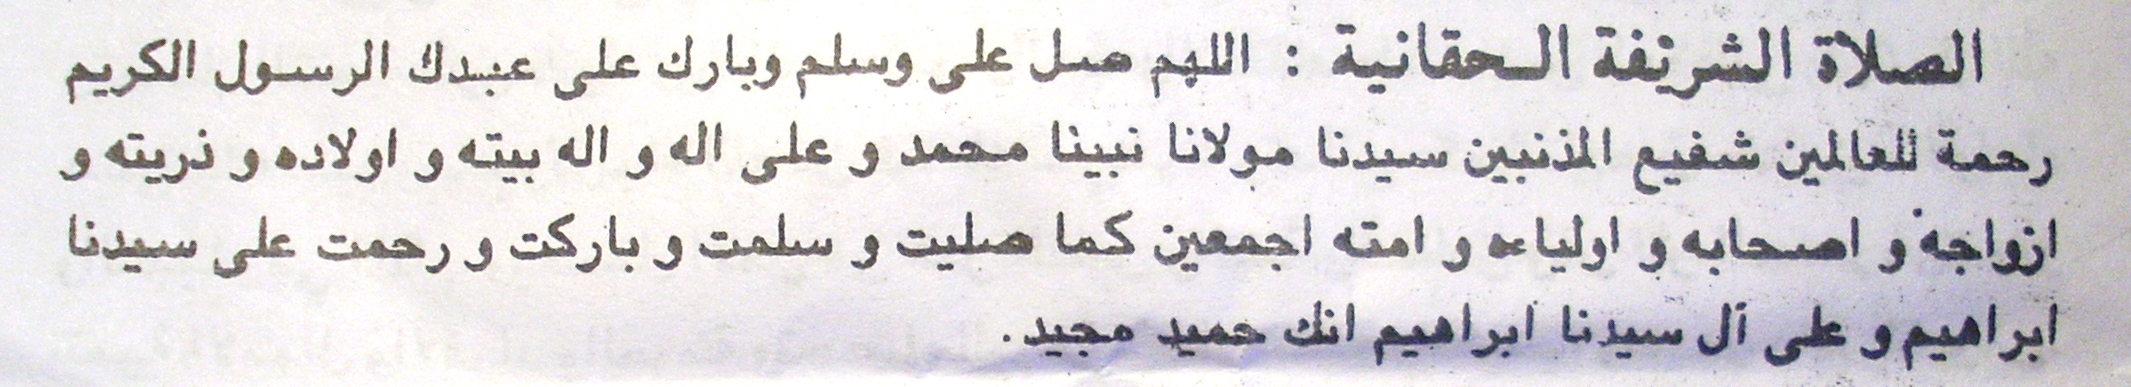 الصلاة الشرتفة الحقانية : اللهم صل على وسلم وبارك على عبدك الرسول الكريم
رحمة للعالمين شفيع المذنبين سيدنا مولانا نبينا محمد و على اله و اله بيته و اولاده و ذريته و
ازواجه و اصحابه و اولياءه و امته اجمعين كما صليت و سلمت و باركت و رحمت على سيدنا
ابراهيم و على آل سيدنا ابراهيم انك حميد مجيد.